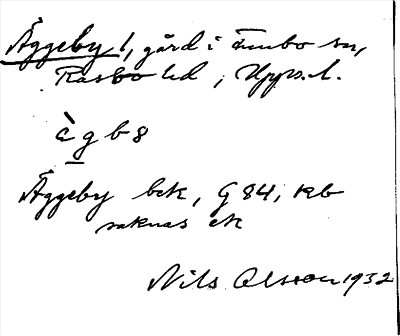 Äggeby 1, gård i Funbo sn,
Rasbo hd, Upps. l.
ὰ g b 8
Äggeby bek, G 84, kb
saknas ek
Nils Olsson 1932